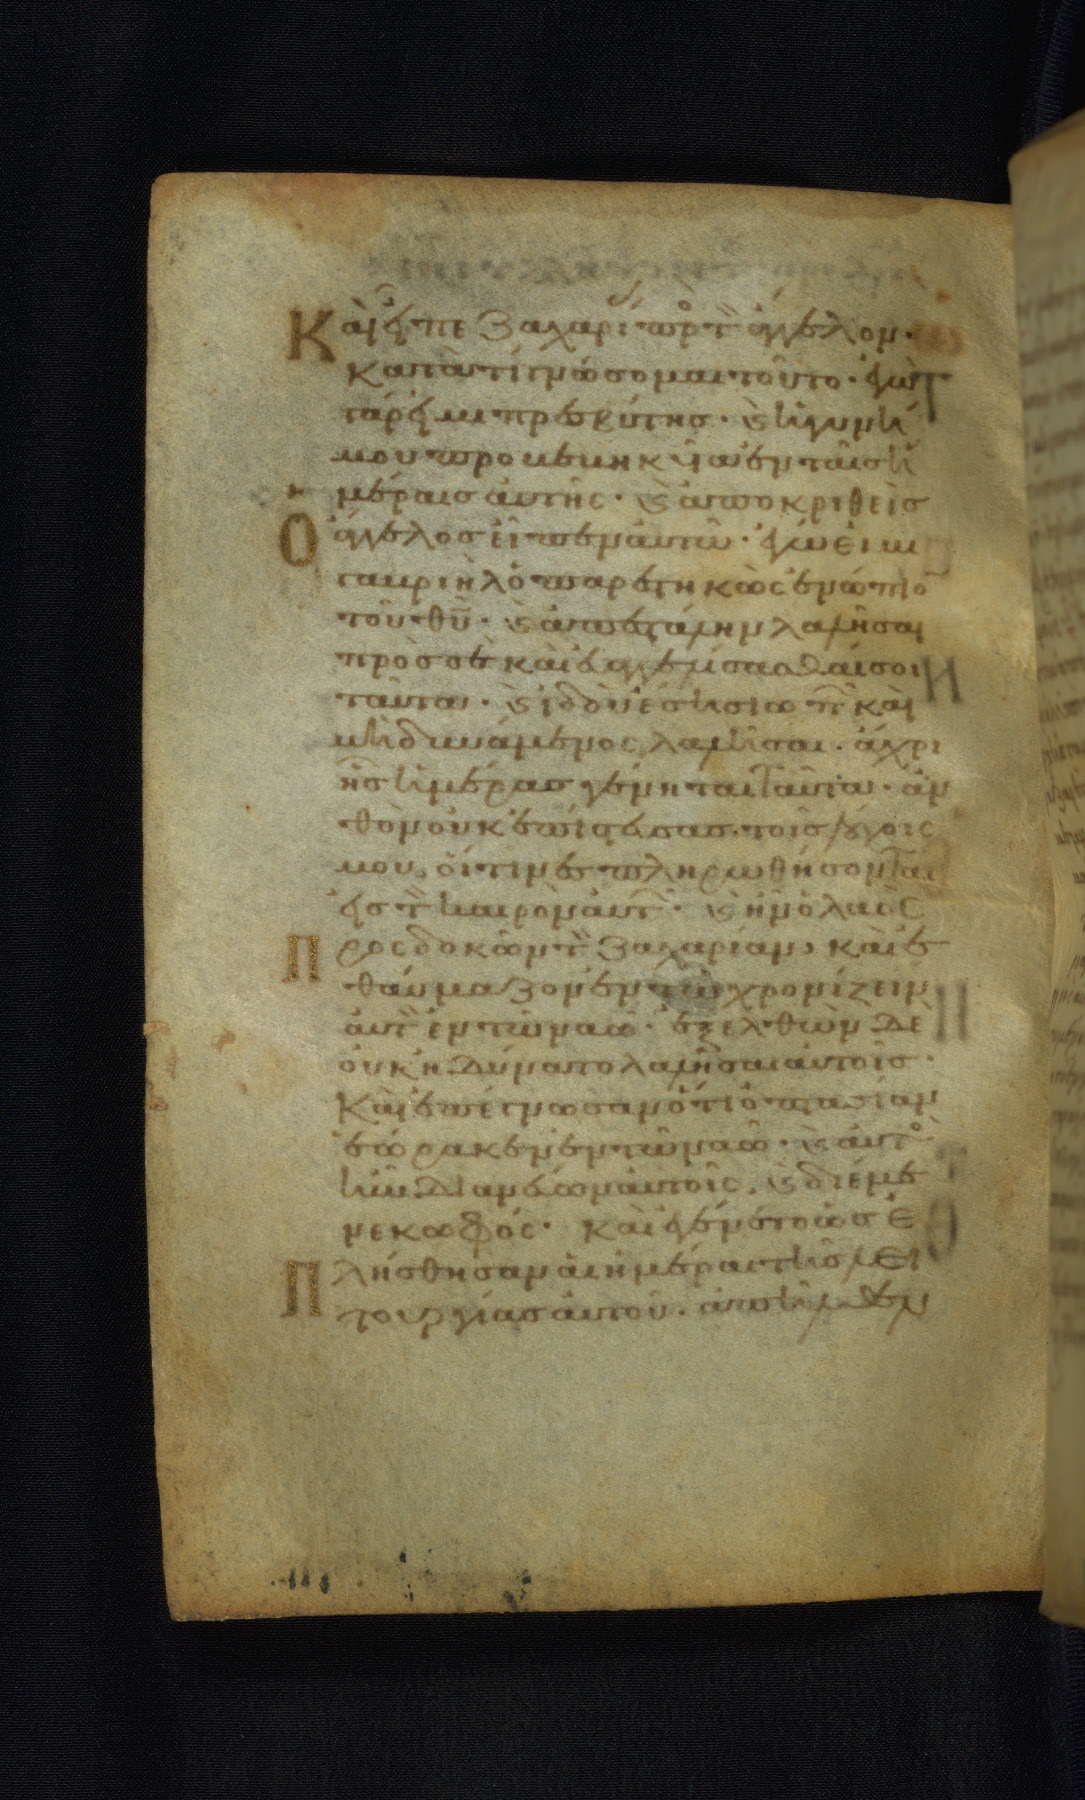 Καὶ εἶπε Ζαχαρίας πρὸς τ̀ ἄγγελον·
κατὰ τί γνώσομαι τοῦτο· ἐγὼ
γάρ εἰμι πρεσβύτης· ϗ ἡ γυνή
μου προβεβηκυῖα ἐν ταῖς ἡ
μέραις αὐτῆς· ϗ ἀποκριθεὶς
Ὁ ἄγγελος εἶπεν αὐτῶ· ἐγώ εἰμι
γαβριὴλ ὁ παρεστηκὼς ἐνώπιο
τοῦ θῦ· ϗ ἀπεστάλην λαλῆσαι
πρὸς σὲ καὶ εὐαγγελίσασθαί σοι
ταῦτα· ϗ ἰδοὺ ἔση σιωπῶν καὶ
μὴ δυνάμενος λαλῆσαι· ἄχρι
ἧς ἡμέρας γένηται ταῦτα· ἀν
θ' ὧν οὐκ ἐπίστευσας τοῖς λόγοις
μου, οἵτινες πληρωθήσονται
εἰς τ̀ καιρὸν αὐτ· ϗ ἦν ὁ λαὸς
Προσδοκῶν τ̀ Ζαχαρίαν, καὶ ἐ
θαύμαζον ἐν τῶ χρονίζειν
αὐτ̀ ἐν τῶ ναῶ· ἐξελθὼν δὲ
οὐκ ἠδύνατο λαλῆσαι αὐτοῖς·
Καὶ ἐπέγνωσαν ὅτι ὀπτασίαν
ἑώρακεν ἐν τῶ ναῶ· ϗ αὐτὸς
ἦν διανεύων αὐτοῖς, ϗ διέμε
νε κωφός· καὶ ἐγένετο ὡς ἐ
Πλήσθησαν αἱ ἡμέραι τῆς λει
τουργίας αὐτοῦ· ἀπῆλθεν